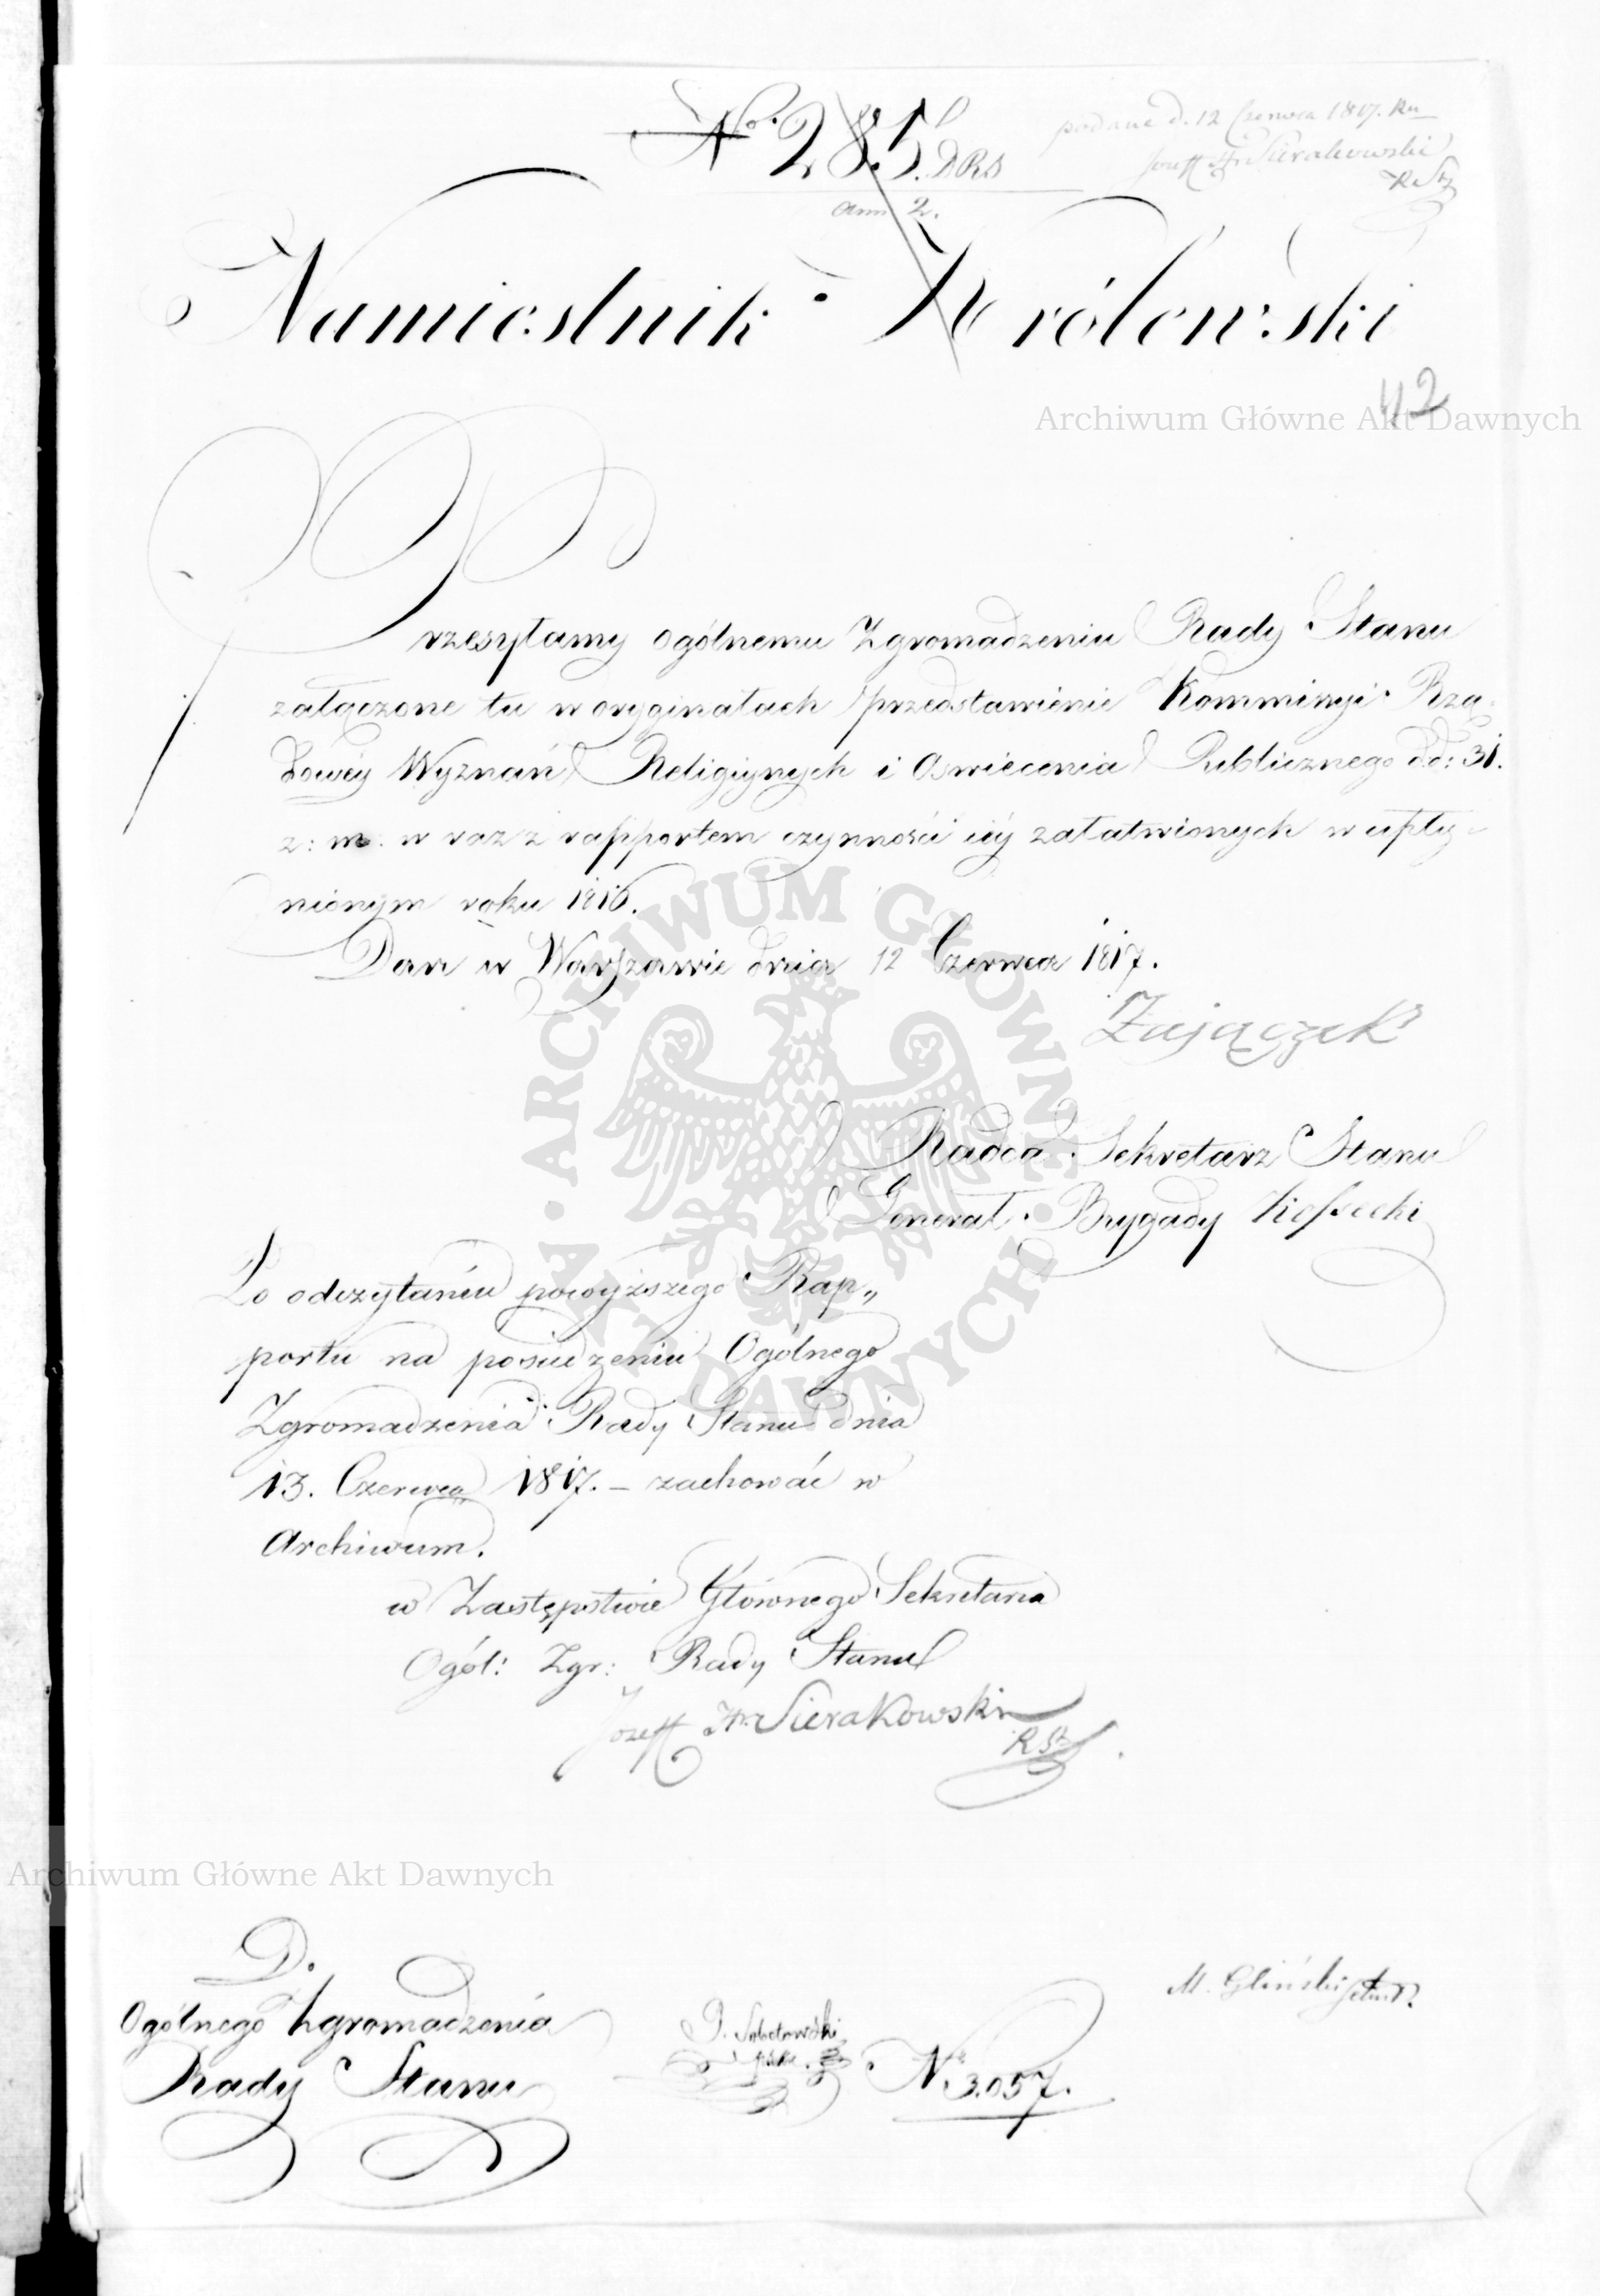 No. 285. DRS
ann 2.
podane d. 12 Czerwca 1817. Ru
Jozeff Hr Sierakowski
R. St.
Namiestnik Królewski
42
Archiwum Główne Akt Dawnych
Przesyłamy ogólnemu Zgromadzeniu Rady Stanu
załączone tu w oryginałach przedstawienie Kommissyi Rzą-
dowéy Wyznań Religiynych i Oswiecenia Publicznego d.d: 31.
z: m: w raz z rapportem czynności iéy załatwionych w upły-
nionym roku 1816.
Dan w Warszawie dnia 12 Czerwca 1817.
Zajączek
Radca Sekretarz Stanu
Generał Brygady Kossecki
Po odczytaniu powyższego Rap„
portu na posiedzeniu Ogólnego
Zgromadzenia Rady Stanu dnia
13. Czerwca 1817. – zachować w
Archiwum.
w Zastępstwie Głównego Sekretarza
Ogól: Zgr: Rady Stanu
Jozeff Hr Sierakowski
R. St.
ARCHIWUM GŁÓWNE AKT DAWNYCH
Archiwum Główne Akt Dawnych
D.
Ogólnego Zgromadzenia
Rady Stanu
Sobolewski
No. 3.057.
M. Gliński